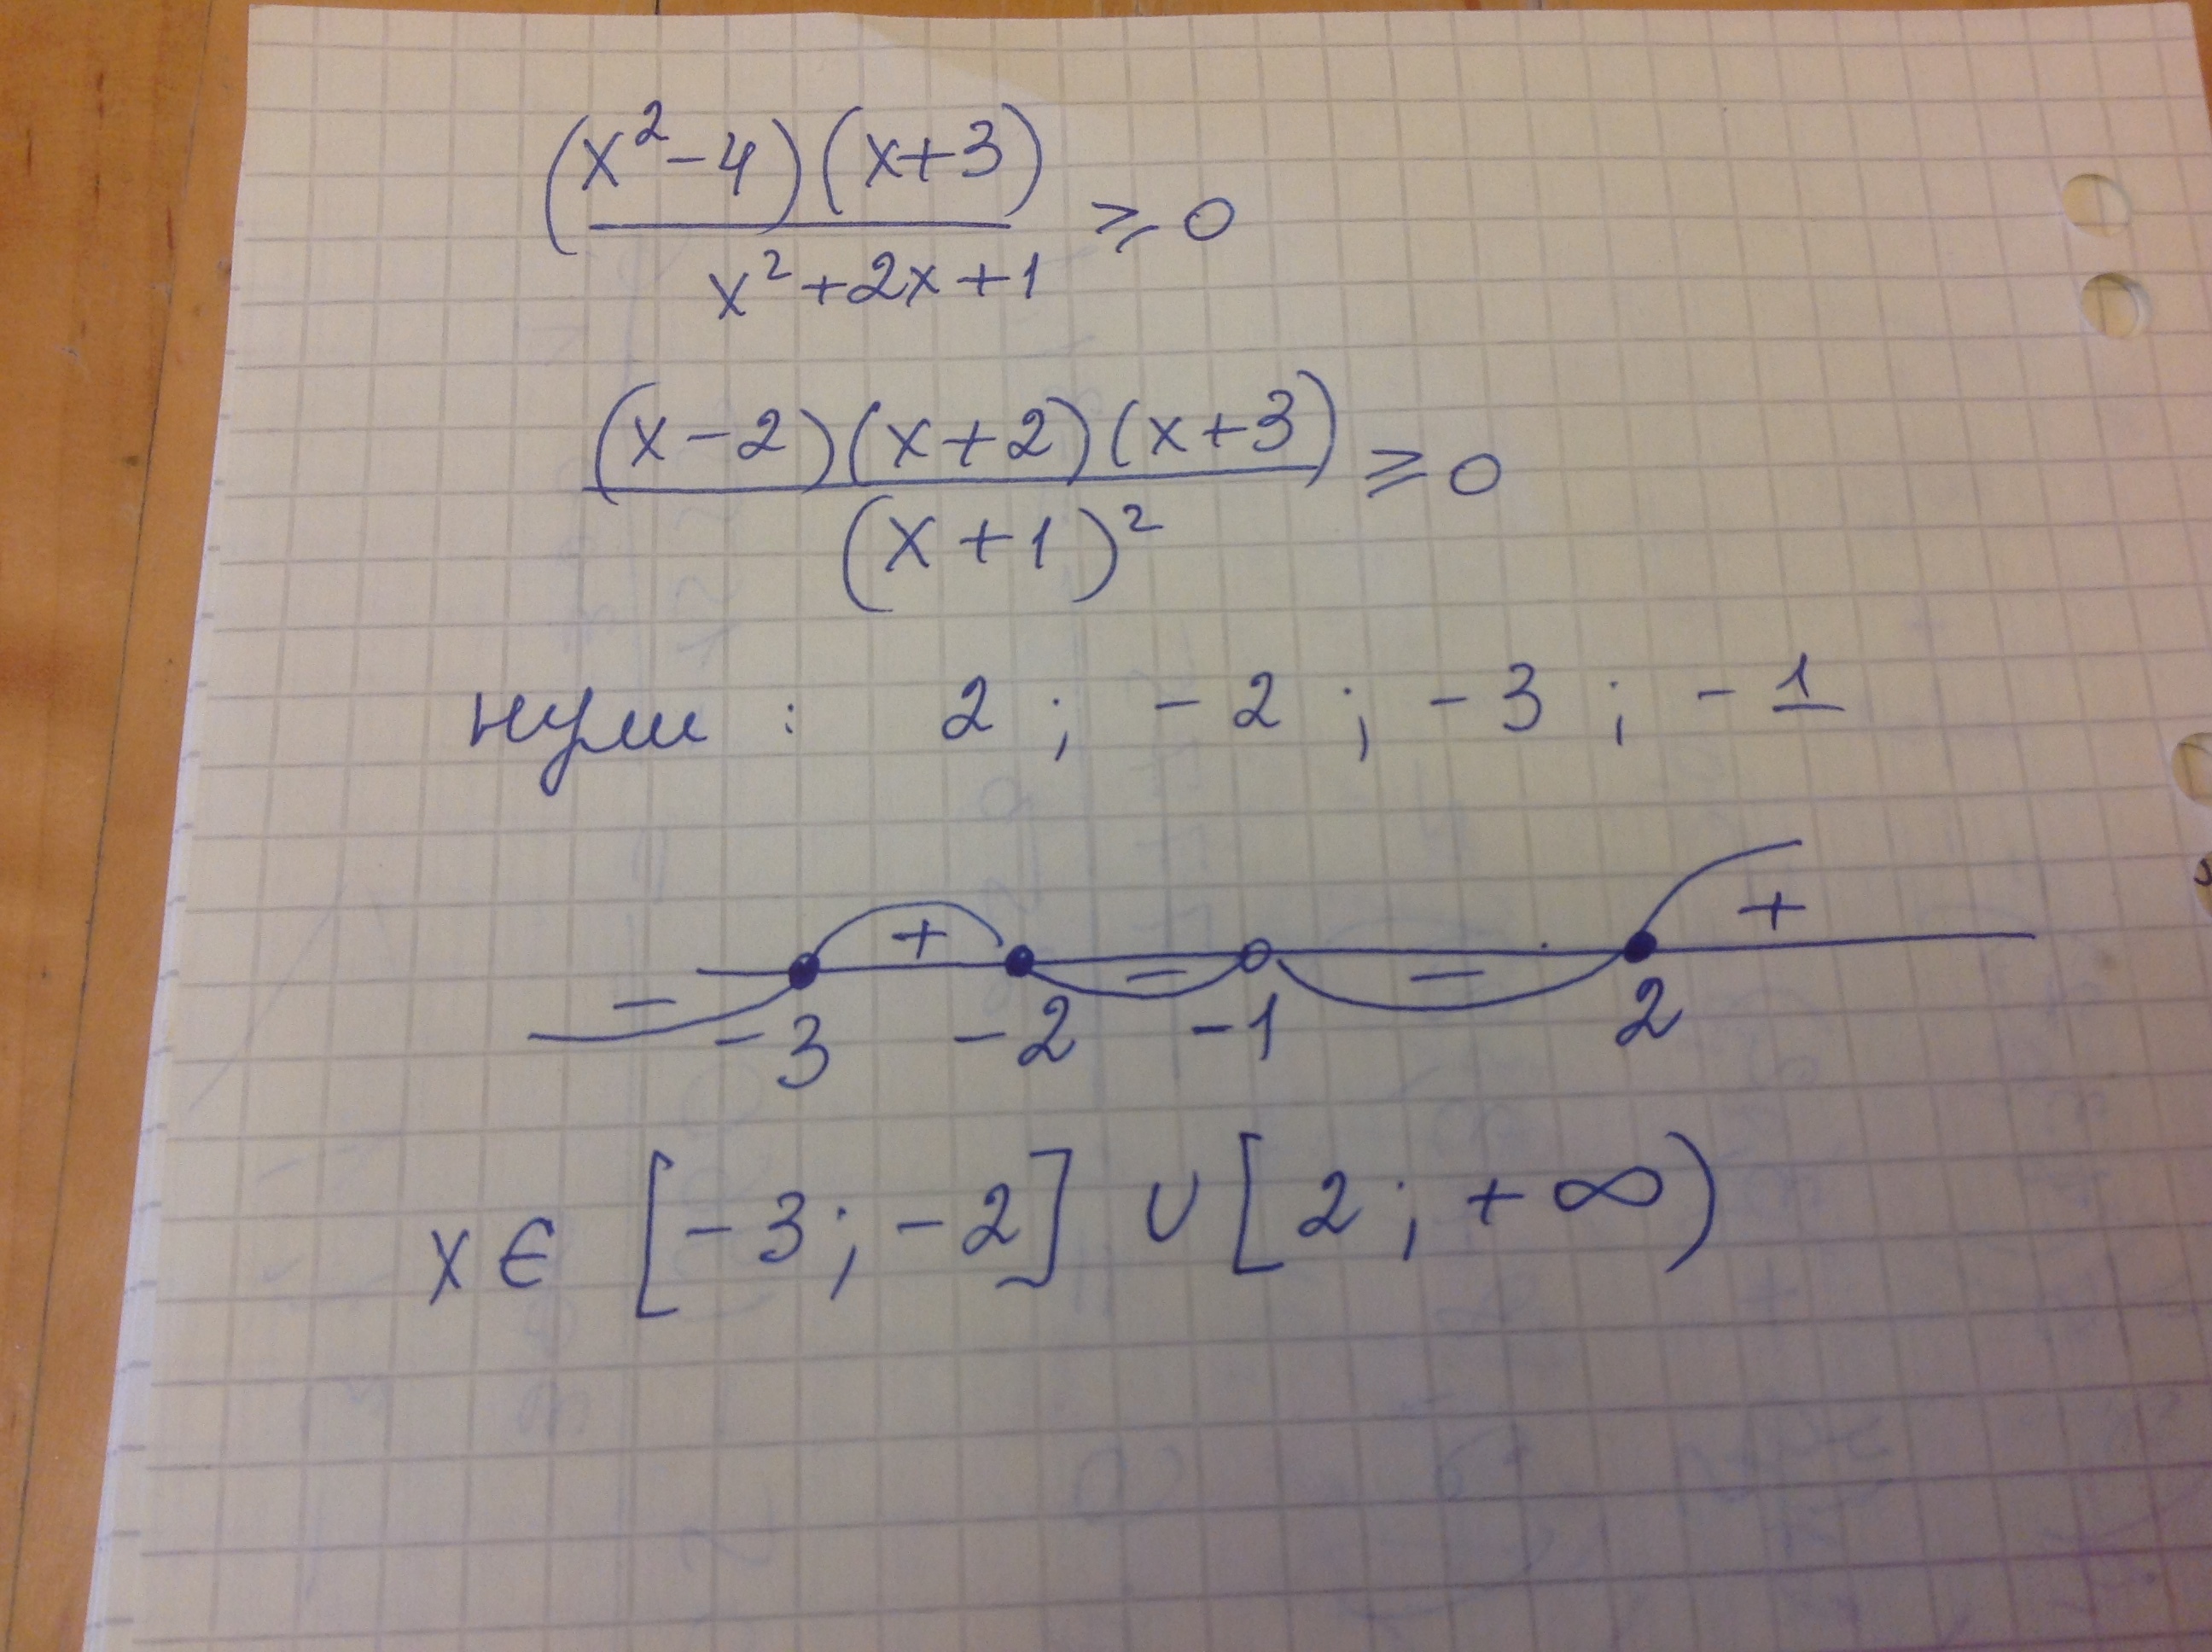 (x²-4)(x+3)
x²+2x+1 ⩾ 0
(x-2)(x+2)(x+3)
(x+1)² ⩾ 0
нули : 2 ; -2 ; -3 ; -1
- + - - +
-3 -2 -1 2
x ∈ [-3; -2] ∪ [2; +∞)